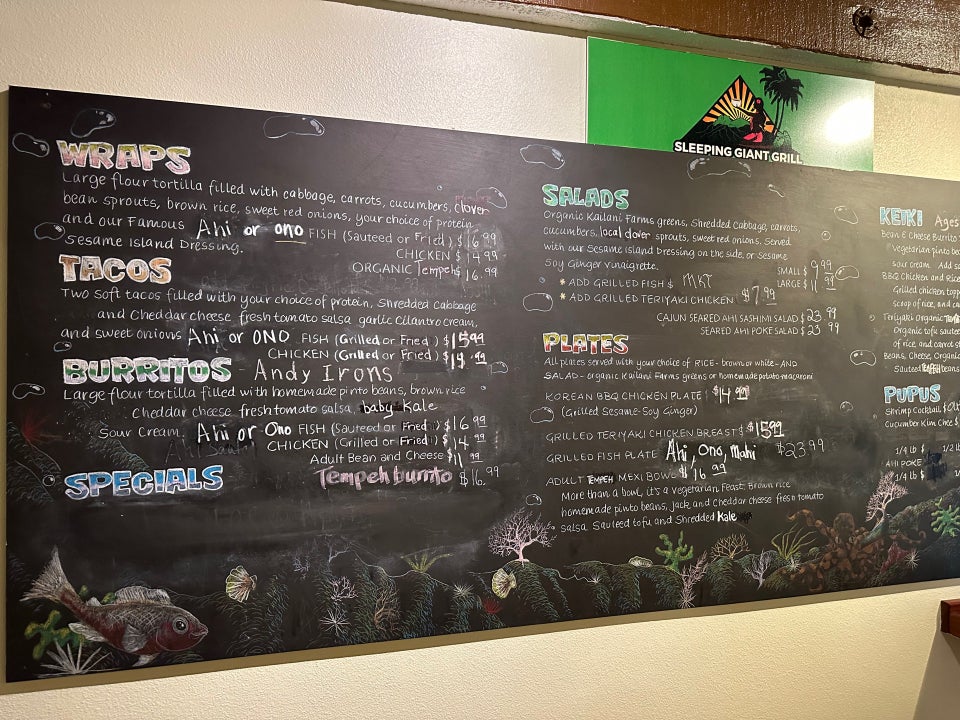 SLEEPING GIANT GRILL
WRAPS
Large flour tortilla filled with cabbage, carrots, cucumbers, clover
bean sprouts, brown rice, sweet red onions, your choice of protein
and our Famous Ahi or ono FISH (Sauteed or Fried) $16.99
Sesame Island Dressing. CHICKEN $14.99
ORGANIC Tempeh $16.99
TACOS
Two soft tacos filled with your choice of protein, Shredded Cabbage
and Cheddar cheese fresh tomato salsa garlic cilantro cream,
and sweet onions Ahi or ONO FISH (Grilled or Fried) $15.99
CHICKEN (Grilled or Fried) $14.99
BURRITOS - Andy Irons
Large flour tortilla filled with homemade pinto beans, brown rice
Cheddar cheese fresh tomato salsa, baby Kale
Sour Cream. Ahi or Ono FISH (Sauteed or Fried) $16.99
CHICKEN (Grilled or Fried) $14.99
Adult Bean and Cheese $11.99
SPECIALS Tempeh burrito $16.99
SALADS
Organic Kailani Farms greens, Shredded Cabbage, carrots,
cucumbers, local clover sprouts, sweet red onions. Served
with our Sesame Island dressing on the side, or Sesame
Soy Ginger Vinaigrette. SMALL $9.99
LARGE $11.99
* ADD GRILLED FISH $ MKT
* ADD GRILLED TERIYAKI CHICKEN $7.99
CAJUN SEARED AHI SASHIMI SALAD $23.99
SEARED AHI POKE SALAD $23.99
PLATES
All plates served with your choice of RICE - brown or white - AND
SALAD - organic Kailani Farms greens or homemade potato-macaroni
KOREAN BBQ CHICKEN PLATE $14.99
(Grilled Sesame-Soy Ginger)
GRILLED TERIYAKI CHICKEN BREAST $15.99
GRILLED FISH PLATE Ahi, Ono, Mahi $23.99
ADULT TEMPEH MEXI BOWL $16.99
More than a bowl, it's a vegetarian Feast. Brown rice
homemade pinto beans, jack and Cheddar cheese fresh tomato
salsa Sauteed tofu and Shredded Kale
KEIKI Ages
Bean & Cheese Burrito
Vegetarian pinto bea
sour cream. Add s
BBQ Chicken and Rice
Grilled chicken topp
scoop of rice, and ca
Teriyaki Organic
Organic tofu saute
of rice, and carrot s
Beans, Cheese, Organic
Sauteed beans
PUPUS
Shrimp Cocktail
Cucumber Kim Chee $
1/4 lb $ 1/2 l
AHI POKE
1/4 lb $